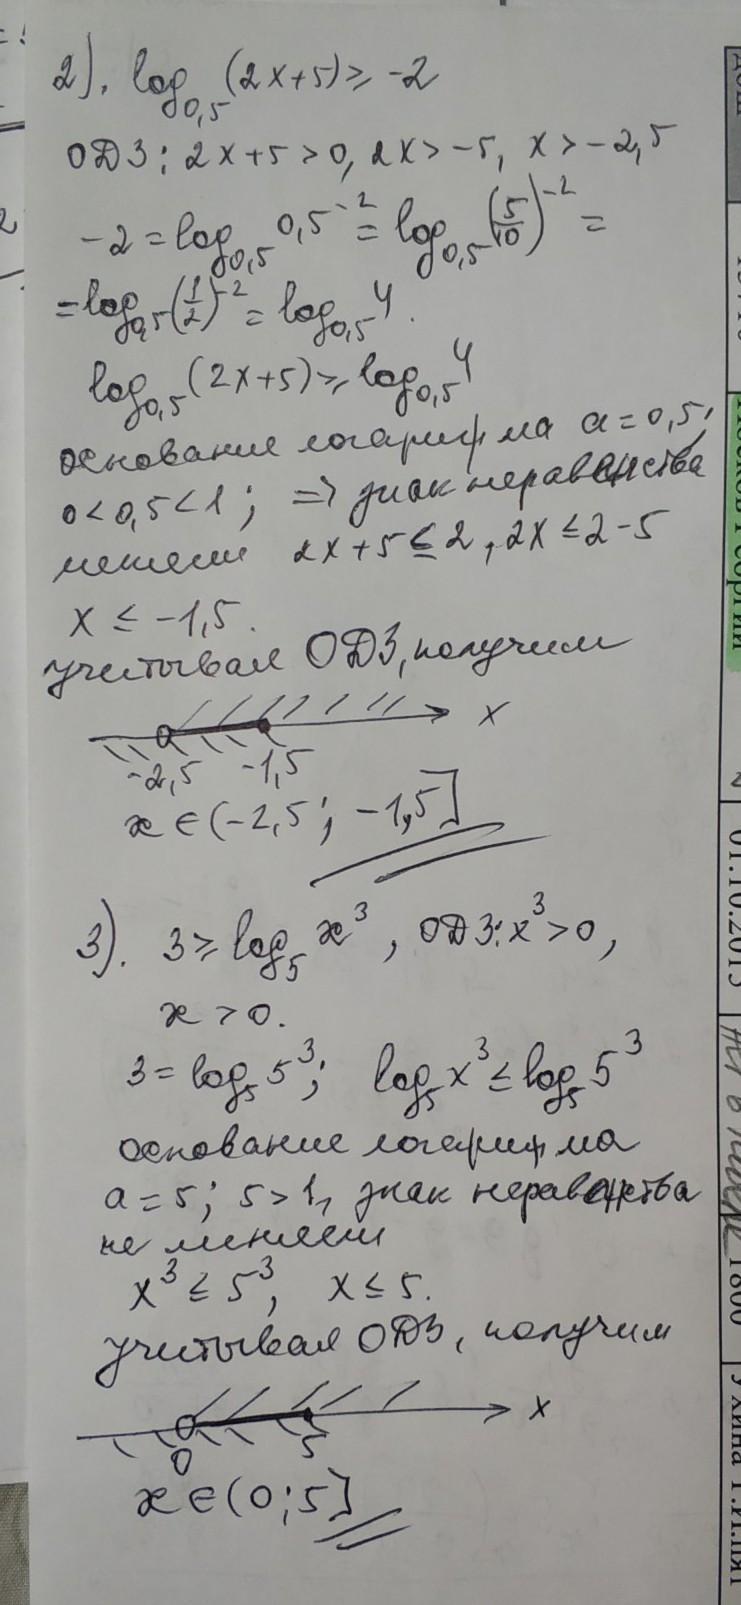 2). log₀,₅(2x+5) ≥ -2
ОДЗ: 2x+5>0, 2x>-5, x>-2,5
-2 = log₀,₅ 0,5⁻² = log₀,₅ (5/10)⁻² =
= log₀,₅ (1/2)⁻² = log₀,₅ 4.
log₀,₅(2x+5) ≥ log₀,₅ 4
основание логарифма a = 0,5;
0<0,5<1; => знак неравенства
меняем 2x+5 ≤ 2, 2x ≤ 2-5
x ≤ -1,5.
учитывая ОДЗ, получим
x
-2,5 -1,5
x ∈ (-2,5; -1,5]
3). 3 ≥ log₅ x³, ОДЗ: x³>0,
x > 0.
3 = log₅ 5³; log₅ x³ ≤ log₅ 5³
основание логарифма
a = 5; 5>1, знак неравенства
не меняем
x³ ≤ 5³, x ≤ 5.
учитывая ОДЗ, получим
x
0 5
x ∈ (0; 5]
01.10.2015
1800